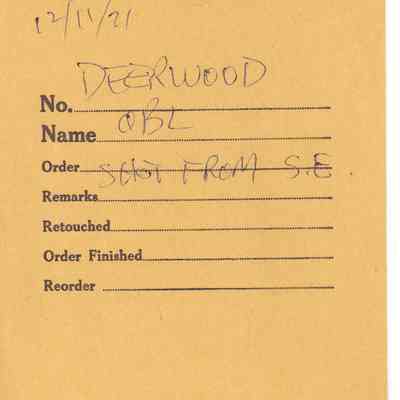 12/11/21
DEERWOOD
No.
Name OBL
Order SHOT FROM S.E.
Remarks
Retouched
Order Finished
Reorder